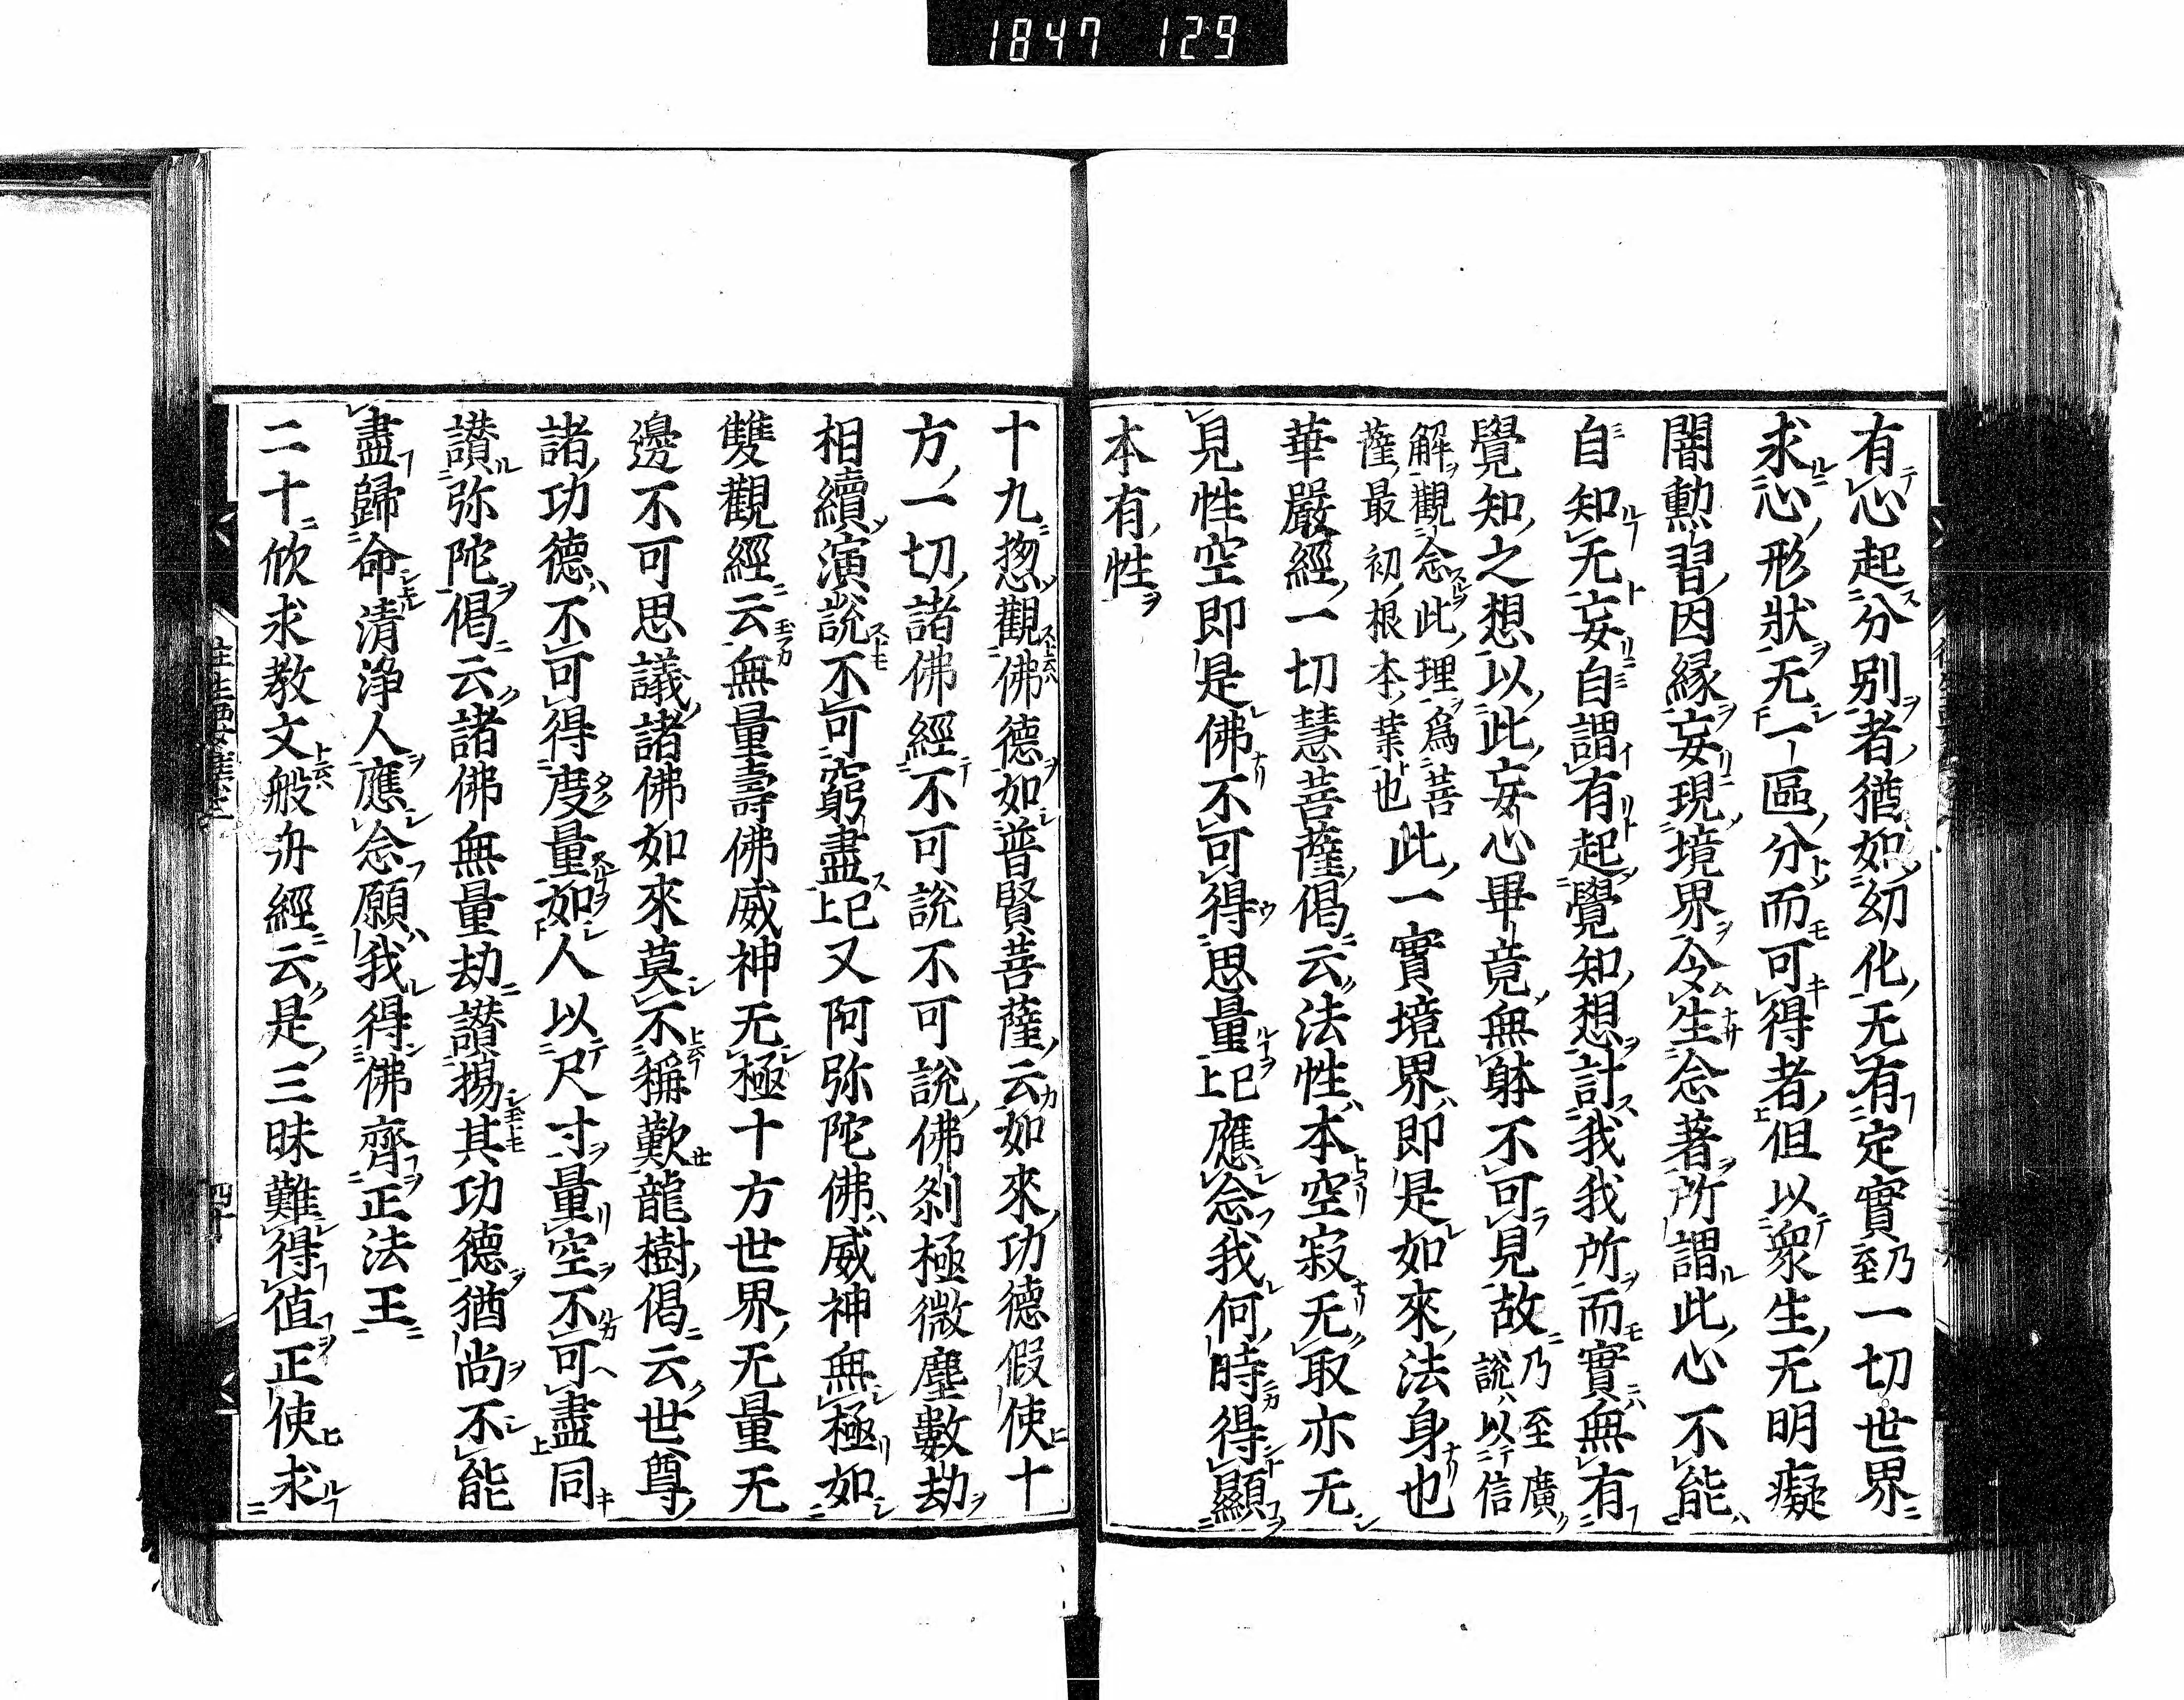 1847 129
有心起分別者猶如幻化无有定實乃至一切世界
求心形狀无一區分而可得者但以衆生无明癡
闇勲習因縁妄現境界令生念著所謂此心不能
自知无妄自謂有起覺知想計我我所而實無有
覺知之想以此妄心畢竟無躰不可見故乃至廣說以信
解觀念此理爲菩薩最初根本葉也此一實境界即是如來法身也
華嚴經一切慧菩薩偈云法性本空寂无取亦无
見性空即是佛不可得思量已上應念我何時得顯
本有性
十九惣觀佛德如普賢菩薩云如來功德假使十
方一切諸佛經不可說不可說佛刹極微塵數劫
相續演說不可窮盡已上又阿弥陀佛威神無極如
雙觀經云無量壽佛威神无極十方世界无量无
邊不可思議諸佛如來莫不稱歎龍樹偈云世尊
諸功德不可得度量如人以尺寸量空不可盡同上
讃弥陀偈云諸佛無量劫讃揚其功德猶尚不能
盡歸命清淨人應念願我得佛齊正法王
二十欣求教文般舟經云是三昧難得值正使求